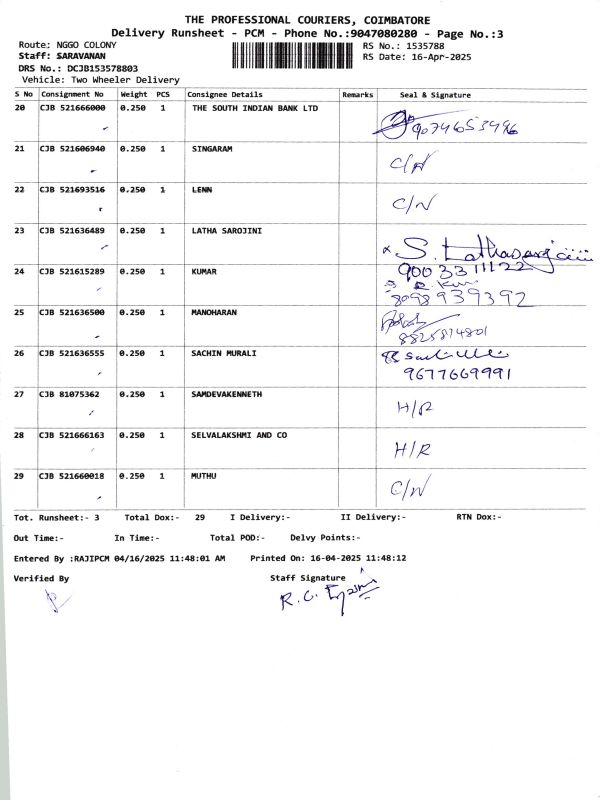 THE PROFESSIONAL COURIERS, COIMBATORE
Delivery Runsheet - PCM - Phone No.:9047080280 - Page No.:3
Route: NGGO COLONY RS No.: 1535788
Staff: SARAVANAN RS Date: 16-Apr-2025
DRS No.: DCJB153578803
Vehicle: Two Wheeler Delivery
S No Consignment No Weight PCS Consignee Details Remarks Seal & Signature
20 CJB 521666000 0.250 1 THE SOUTH INDIAN BANK LTD
9074653496
21 CJB 521606940 0.250 1 SINGARAM C/N
22 CJB 521693516 0.250 1 LENN C/N
23 CJB 521636489 0.250 1 LATHA SAROJINI
x S. Lathasarojini
9003311122
24 CJB 521615289 0.250 1 KUMAR
8098939392
25 CJB 521636500 0.250 1 MANOHARAN
8825874801
26 CJB 521636555 0.250 1 SACHIN MURALI
9677669991
27 CJB 81075362 0.250 1 SAMDEVAKENNETH H/R
28 CJB 521666163 0.250 1 SELVALAKSHMI AND CO H/R
29 CJB 521660018 0.250 1 MUTHU C/N
Tot. Runsheet:- 3 Total Dox:- 29 I Delivery:- II Delivery:- RTN Dox:-
Out Time:- In Time:- Total POD:- Delvy Points:-
Entered By :RAJIPCM 04/16/2025 11:48:01 AM Printed On: 16-04-2025 11:48:12
Verified By Staff Signature
R. C.